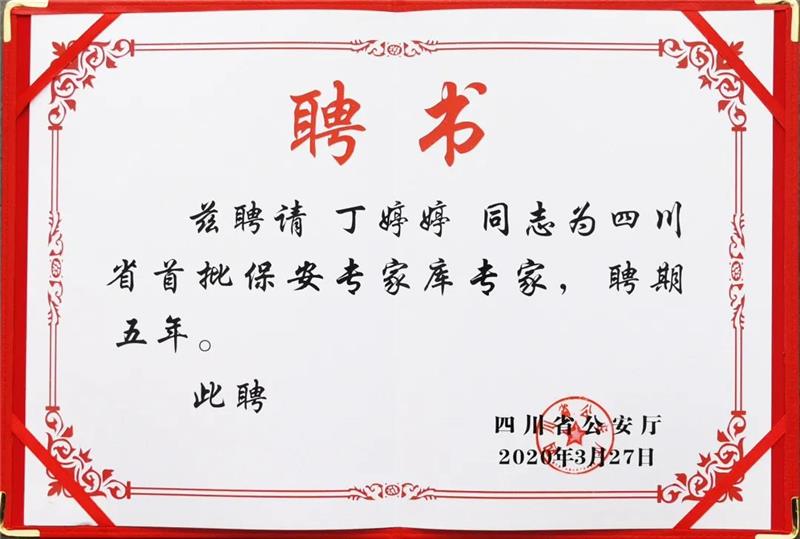 聘书
兹聘请 丁婷婷 同志为四川
省首批保安专家库专家，聘期
五年。
此聘
四川省公安厅
2020年3月27日